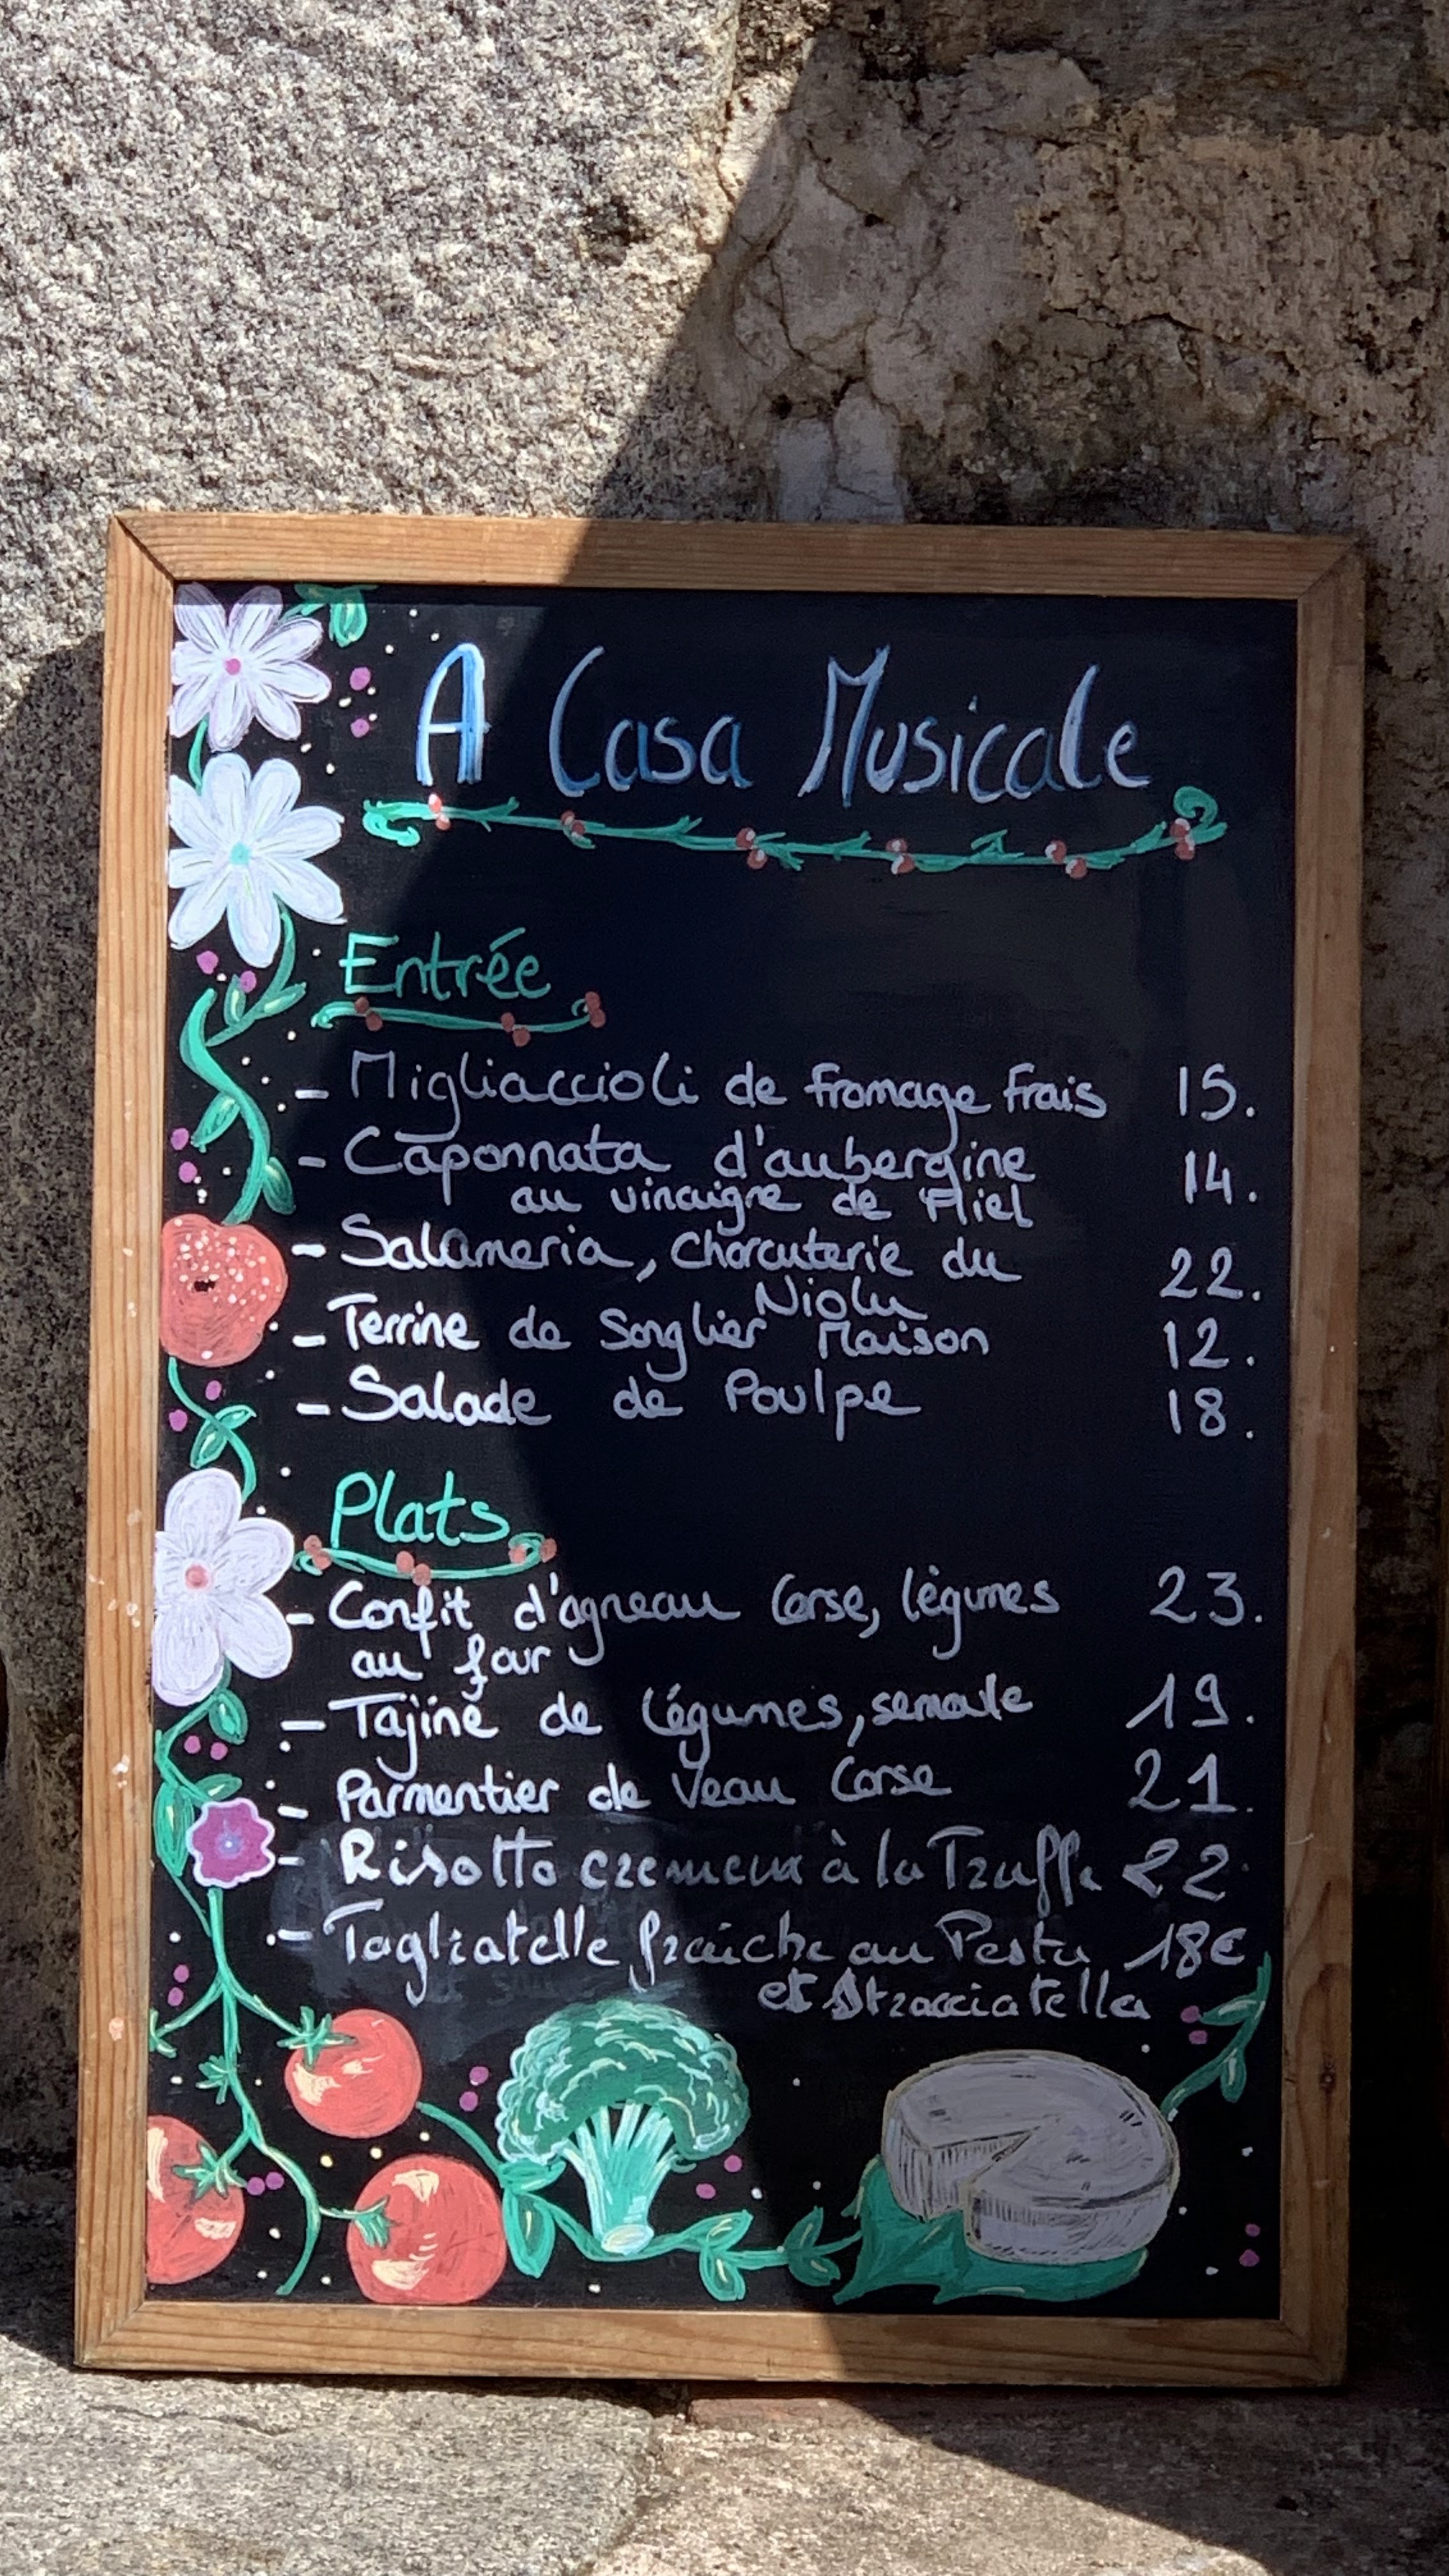 A Casa Musicale
Entrée
- Migliaccioli de fromage frais 15.
- Caponnata d'aubergine 14.
au vinaigre de Miel
- Salameria, Charcuterie du 22.
Niolu
- Terrine de Sanglier Maison 12.
- Salade de Poulpe 18.
Plats
- Confit d'agneau Corse, légumes 23.
au four
- Tajine de légumes, semoule 19.
- Parmentier de Veau Corse 21.
- Risotto cremeux à la Truffe 22.
- Tagliatelle fraiche au Pesto 18€
et Stracciatella